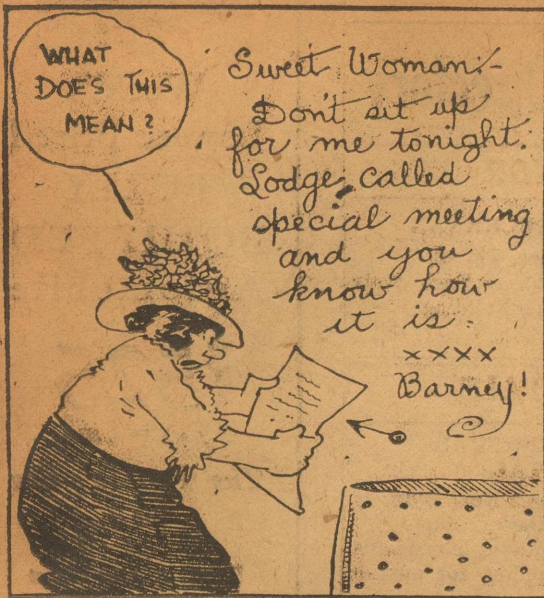 WHAT
DOES THIS
MEAN?
Sweet Woman:-
Don't sit up
for me tonight.
Lodge called
special meeting
and you
know how
it is.
xxxx
Barney!